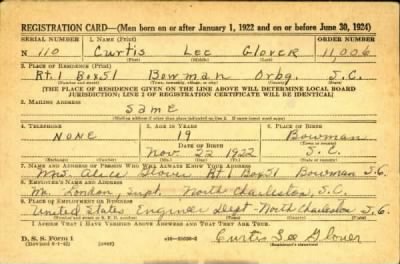 REGISTRATION CARD—(Men born on or after January 1, 1922 and on or before June 30, 1924)
SERIAL NUMBER 1. NAME (Print) ORDER NUMBER
N 110 Curtis Lee Glover 11,006
(First) (Middle) (Last)
2. PLACE OF RESIDENCE (Print)
Rt. 1 Box 51 Bowman Orbg. S.C.
(Number and street) (Town, township, village, or city) (County) (State)
[THE PLACE OF RESIDENCE GIVEN ON THE LINE ABOVE WILL DETERMINE LOCAL BOARD
JURISDICTION; LINE 2 OF REGISTRATION CERTIFICATE WILL BE IDENTICAL]
3. MAILING ADDRESS
Same
(Mailing address if other than place indicated on line 2. If same insert word same)
4. TELEPHONE 5. AGE IN YEARS 6. PLACE OF BIRTH
None 19 Bowman
DATE OF BIRTH (Town or county)
Nov 22 1922 S.C.
(Exchange) (Number) (Mo.) (Day) (Yr.) (State or country)
7. NAME AND ADDRESS OF PERSON WHO WILL ALWAYS KNOW YOUR ADDRESS
Mrs. Glover Rt 1 Box 51 Bowman S.C.
8. EMPLOYER'S NAME AND ADDRESS
Mr. London, Supt. North Charleston, S.C.
9. PLACE OF EMPLOYMENT OR BUSINESS
United States Engineer Dept - North Charleston S.C.
(Number and street or R. F. D. number) (Town) (County) (State)
I AFFIRM THAT I HAVE VERIFIED ABOVE ANSWERS AND THAT THEY ARE TRUE.
D. S. S. Form 1
Curtis Lee Glover